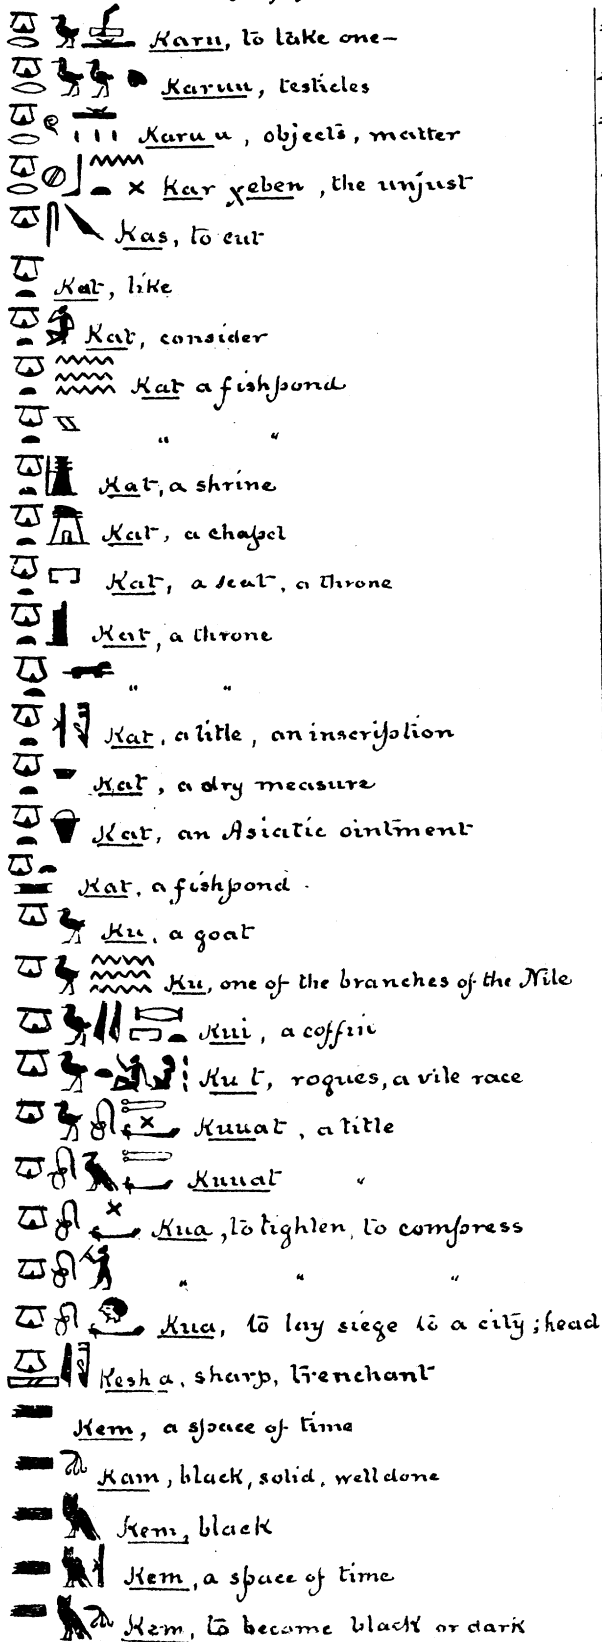 Karu, to take one—
Karuu, testicles
Karuu, objects, matter
Kar χeben, the unjust
Kas, to cut
Kat, like
Kat, consider
Kat a fishpond
" "
Kat, a shrine
Kat, a chapel
Kat, a seat, a throne
Kat, a throne
" "
Kat, a title, an inscription
Kat, a dry measure
Kat, an Asiatic ointment
Kat, a fishpond.
Ku, a goat
Ku, one of the branches of the Nile
Kui, a coffin
Ku t, rogues, a vile race
Kuuat, a title
Kuuat "
Kua, to tighten, to compress
" " "
Kua, to lay siege to a city; head
Kesha, sharp, trenchant
Kem, a space of time
Kam, black, solid, well done
Kem, black
Kem, a space of time
Kem, to become black or dark